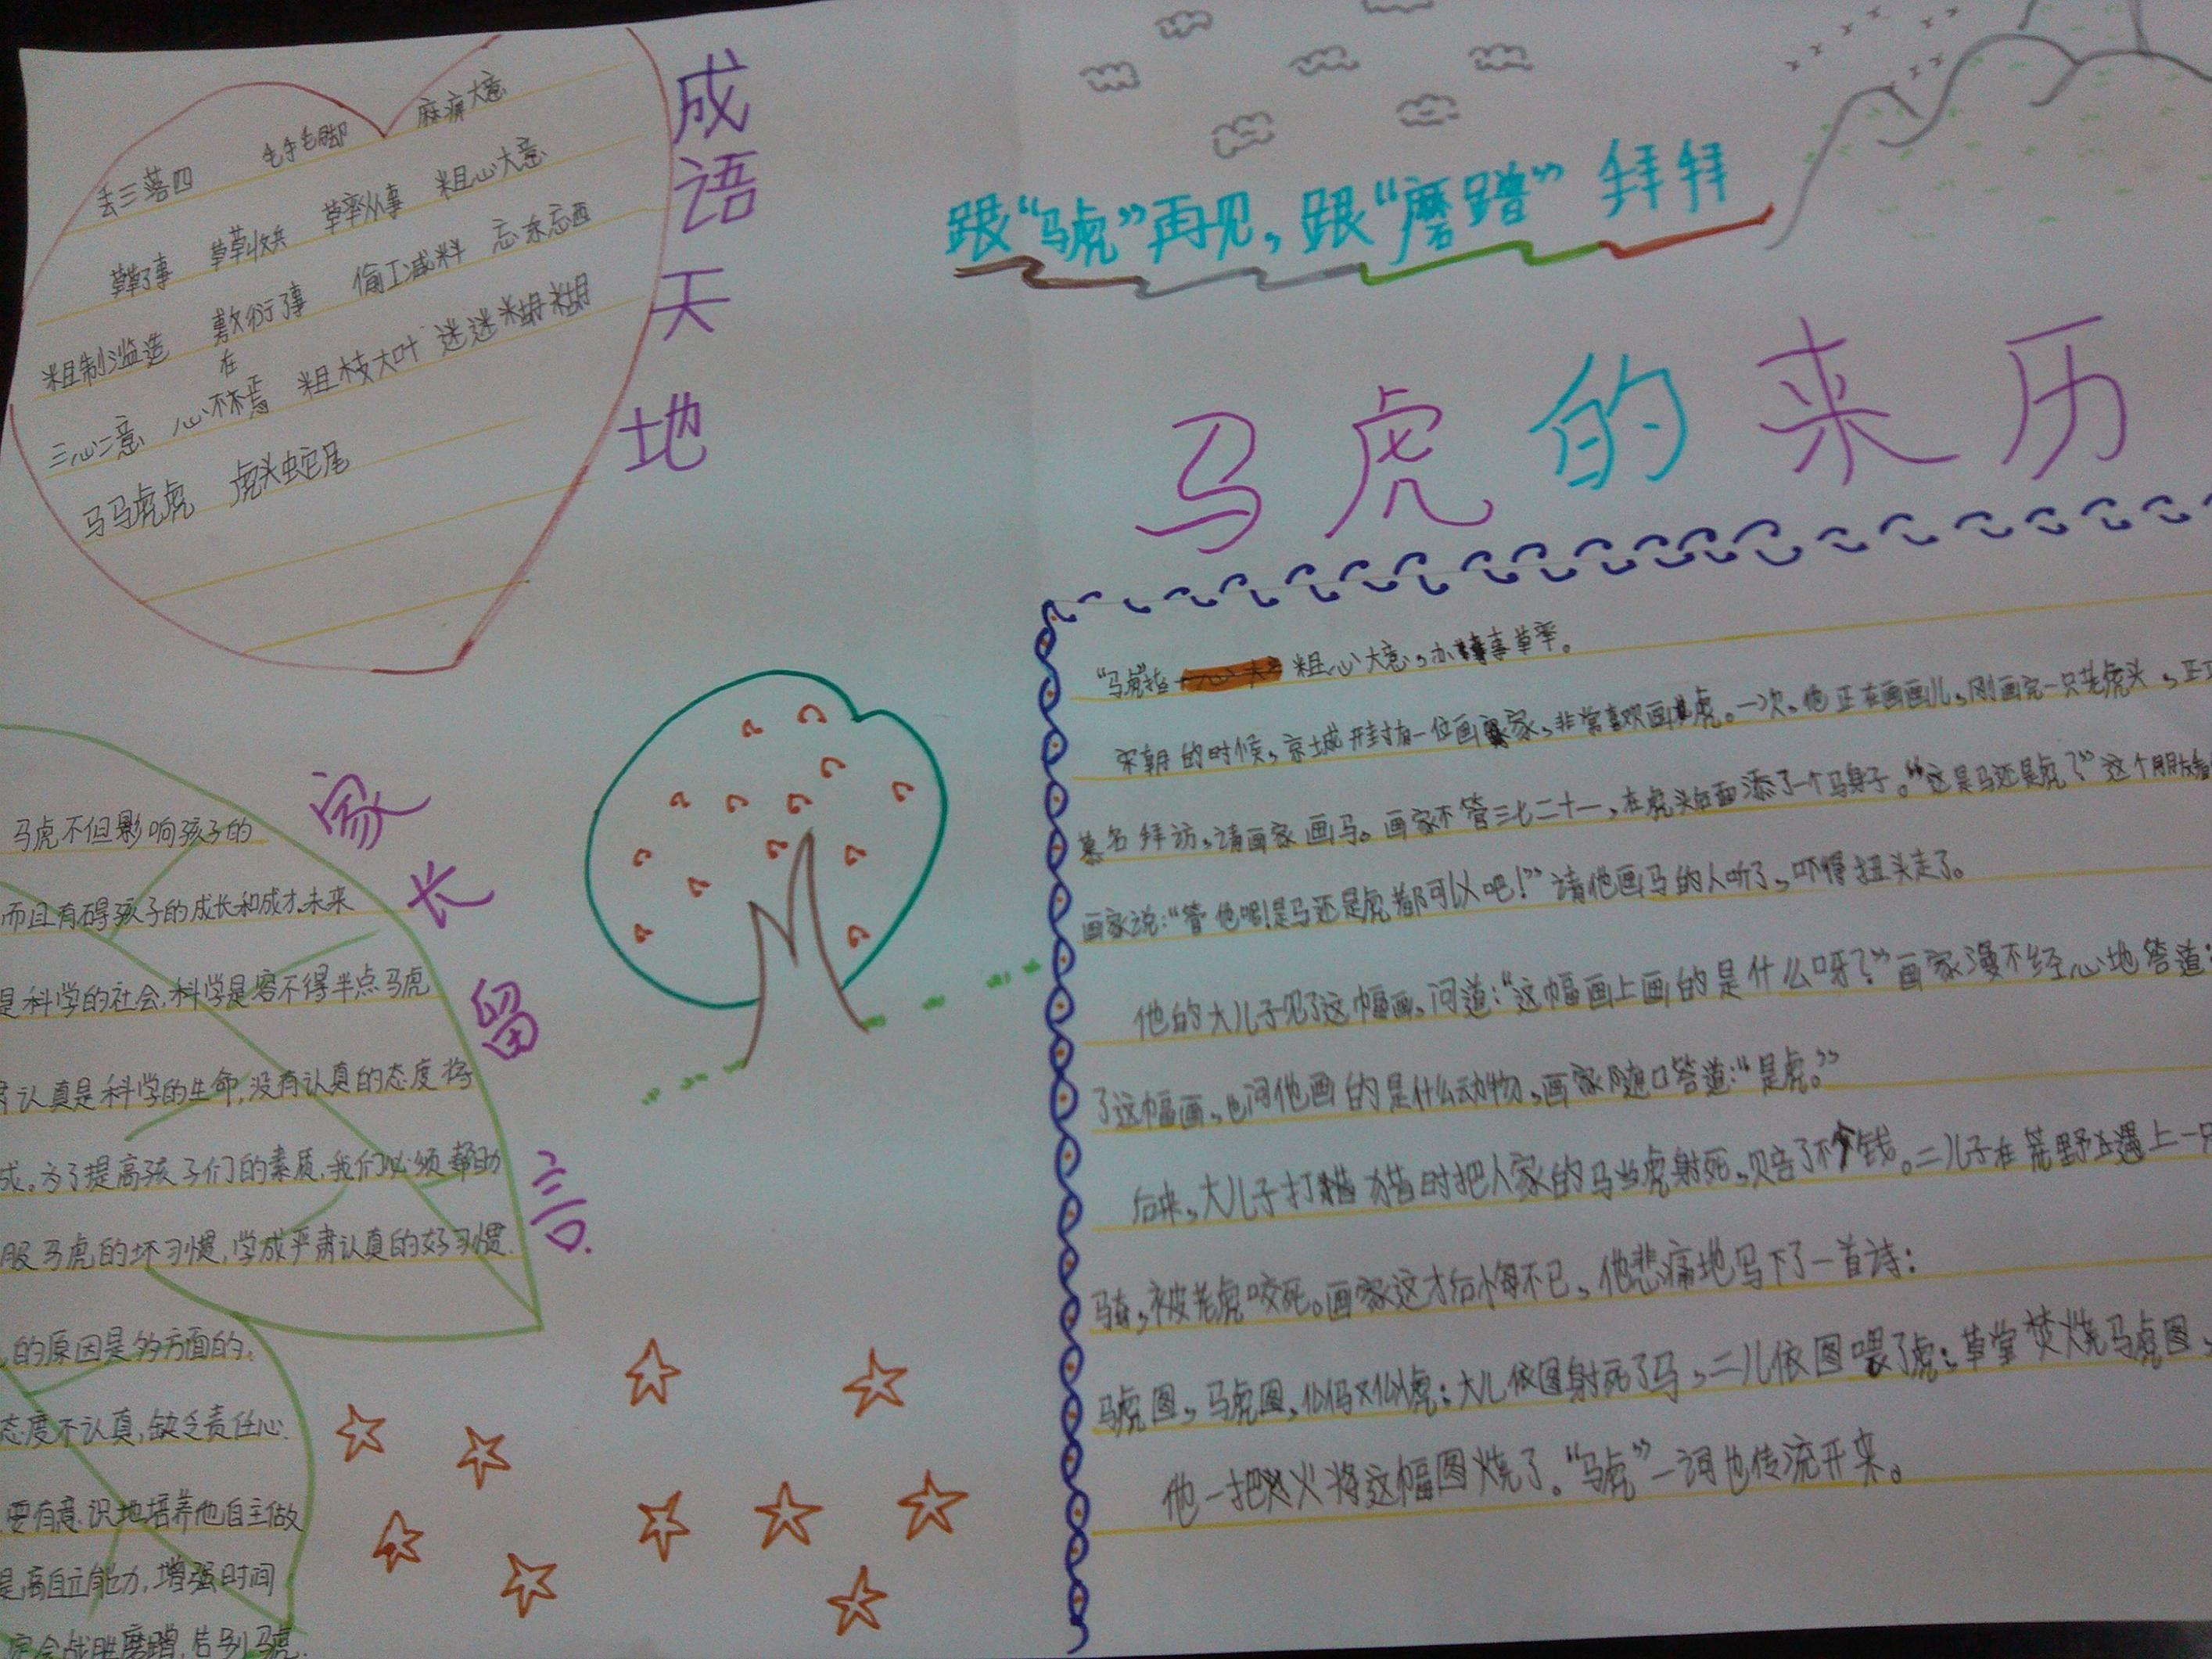 成语天地
丢三落四 毛手毛脚 麻痹大意
草草了事 草草收兵 草率从事 粗心大意
粗制滥造 敷衍了事 偷工减料 忘东忘西
三心二意 心不在焉 粗枝大叶 迷迷糊糊
马马虎虎 虎头蛇尾
家长留言
马虎不但影响孩子的
而且有碍孩子的成长和成才.未来
是科学的社会,科学是容不得半点马虎
认真是科学的生命,没有认真的态度将
成。为了提高孩子们的素质,我们必须帮助
服马虎的坏习惯,学成严肃认真的好习惯.
的原因是多方面的.
态度不认真,缺乏责任心.
要有意识地培养他自主做
提高自立能力,增强时间
定会战胜磨蹭,告别马虎.
跟“马虎”再见,跟“磨蹭”拜拜
马虎的来历
“马虎”指粗心大意,办事草率。
宋朝的时候,京城开封有一位画家,非常喜欢画虎。一次,他正在画画儿,刚画完一只老虎头,正
慕名拜访,请画家画马。画家不管三七二十一,在虎头后面添了一个马身子。“这是马还是虎?”这个朋友
画家说:“管他呢!是马还是虎都可以吧!”请他画马的人听了,吓得扭头走了。
他的大儿子见了这幅画,问道:“这幅画上画的是什么呀?”画家漫不经心地答道:
了这幅画,也问他画的是什么动物,画家随口答道:“是虎。”
后来,大儿子打猎时把人家的马当虎射死,赔了不少钱。二儿子在荒野上遇上一只
骑,被老虎咬死。画家这才后悔不已,他悲痛地写下了一首诗:
马虎图,马虎图,似马又似虎;大儿依图射死了马,二儿依图喂了虎;草堂焚烧马虎图,
他一把火将这幅图烧了。“马虎”一词也传流开来。